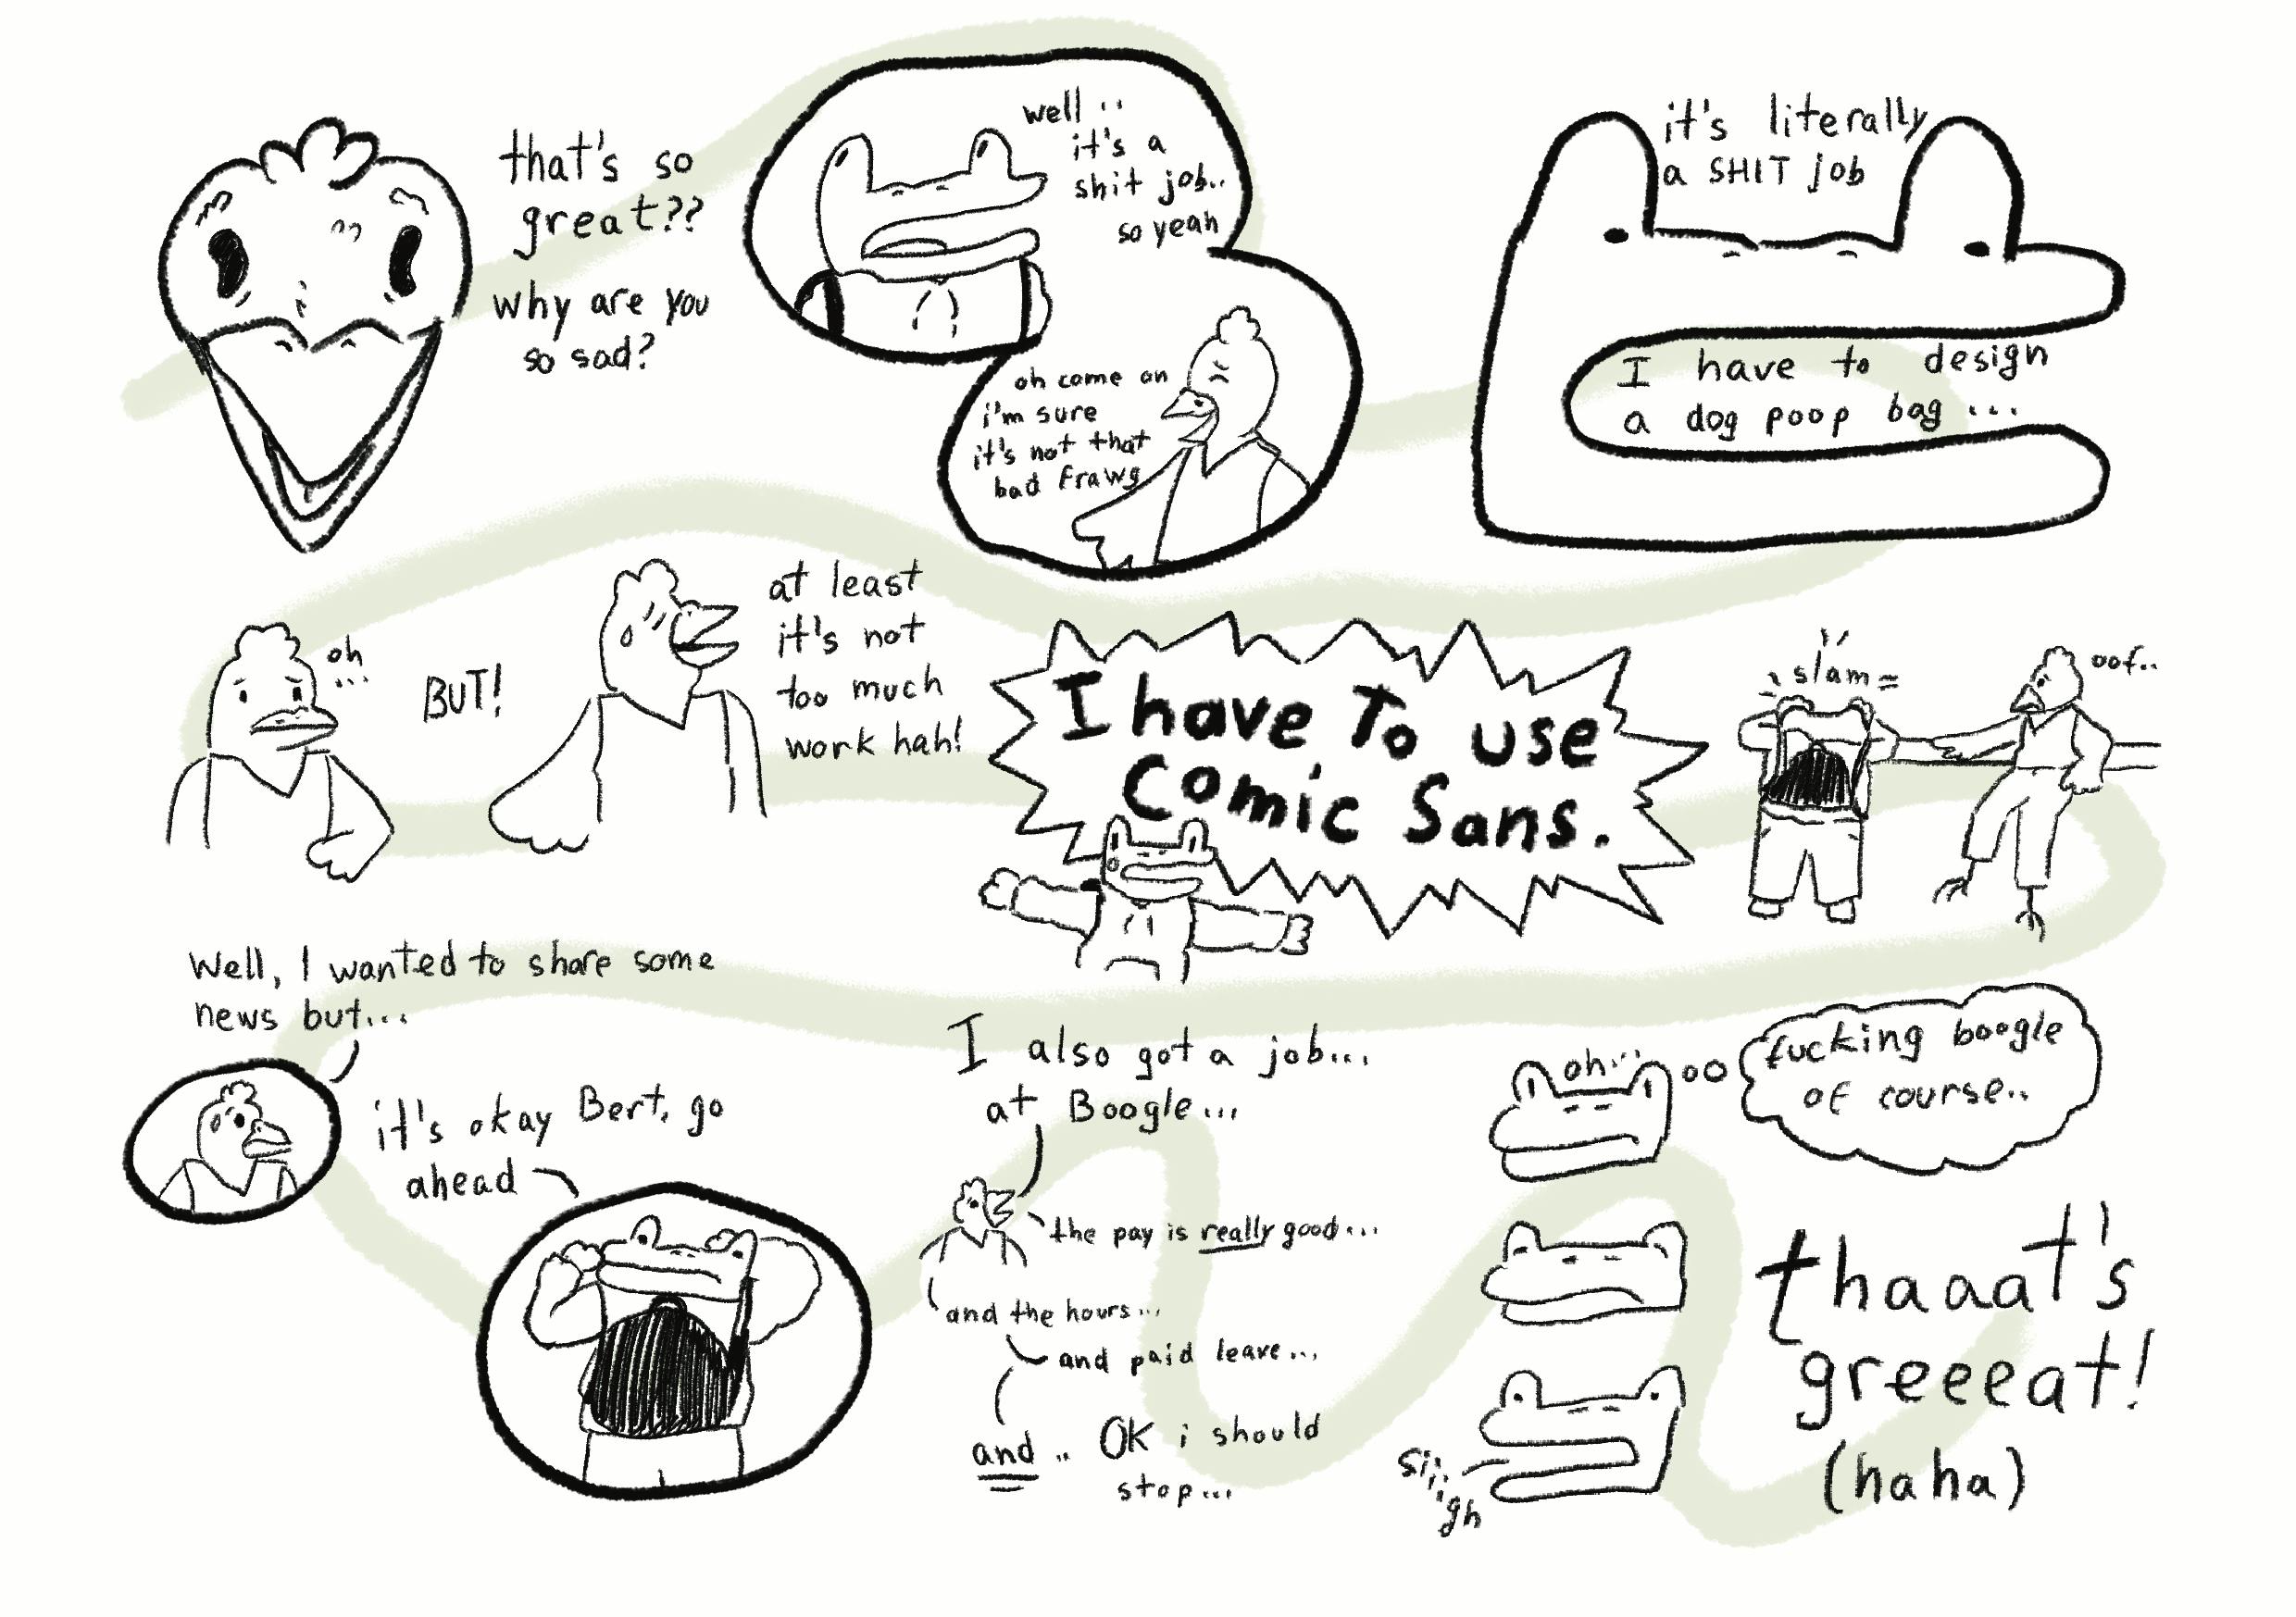 that's so
great??
why are you
so sad?
well ..
it's a
shit job..
so yeah
oh come on
i'm sure
it's not that
bad frawg
it's literally
a SHIT job
I have to design
a dog poop bag ...
oh
...
BUT!
at least
it's not
too much
work hah!
I have To use
Comic Sans.
slam
oof..
Well, I wanted to share some
news but...
it's okay Bert, go
ahead
I also got a job...
at Boogle...
the pay is really good...
and the hours...
and paid leave...
and .. OK i should
stop...
oh...
fucking boogle
of course..
thaaat's
greeeat!
(haha)
siiigh